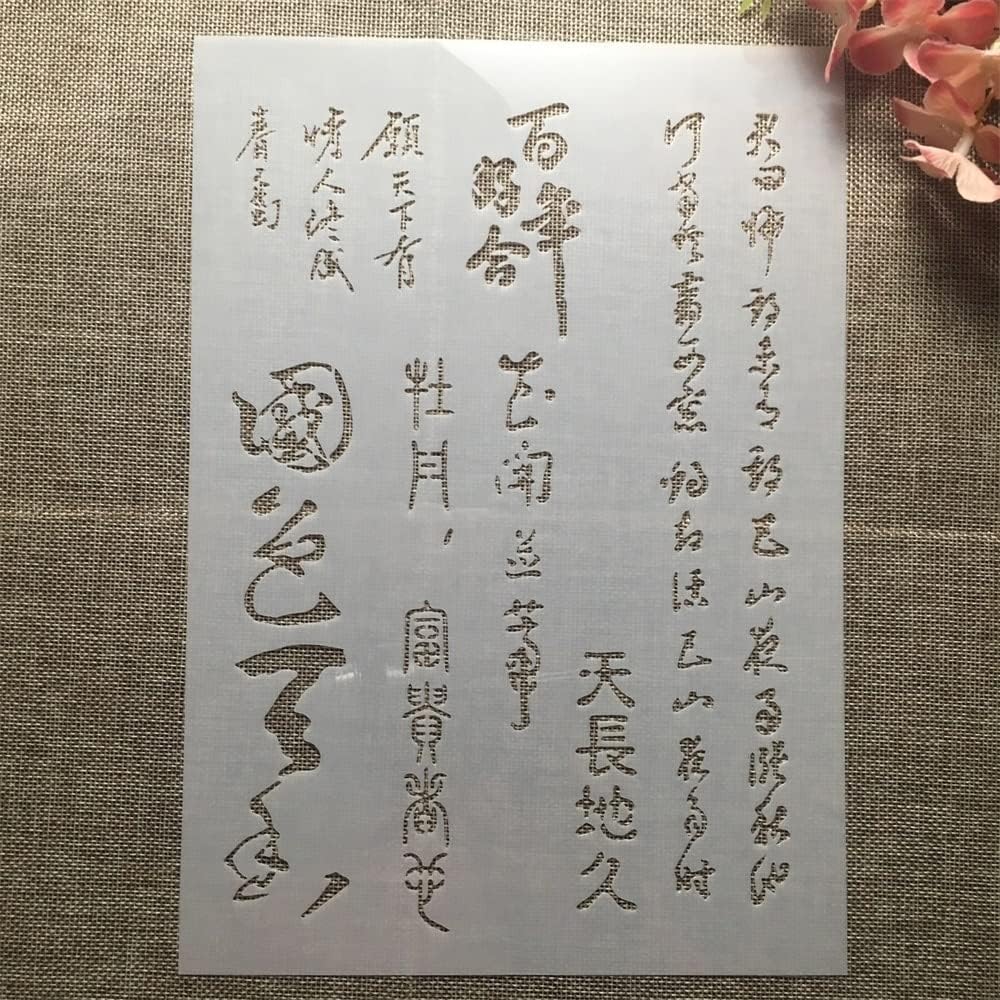 君問歸期未有期巴山夜雨漲秋池
何當共剪西窗燭卻話巴山夜雨時
天長地久
百年好合
花開並蒂
願天下有
情人終成
眷屬
牡丹,富貴
國色天香,